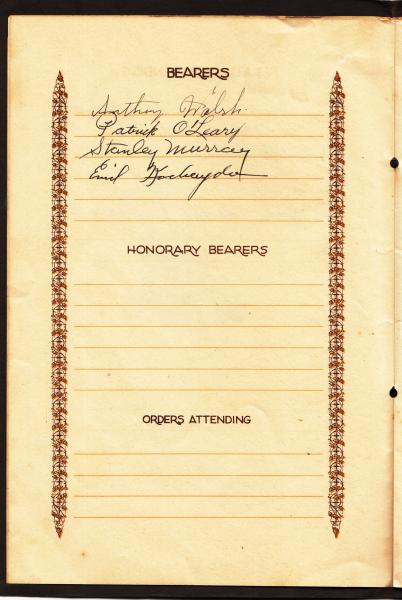 BEARERS
Anthony Walsh
Patrick O'Leary
Stanley Murray
Emil
HONORARY BEARERS
ORDERS ATTENDING